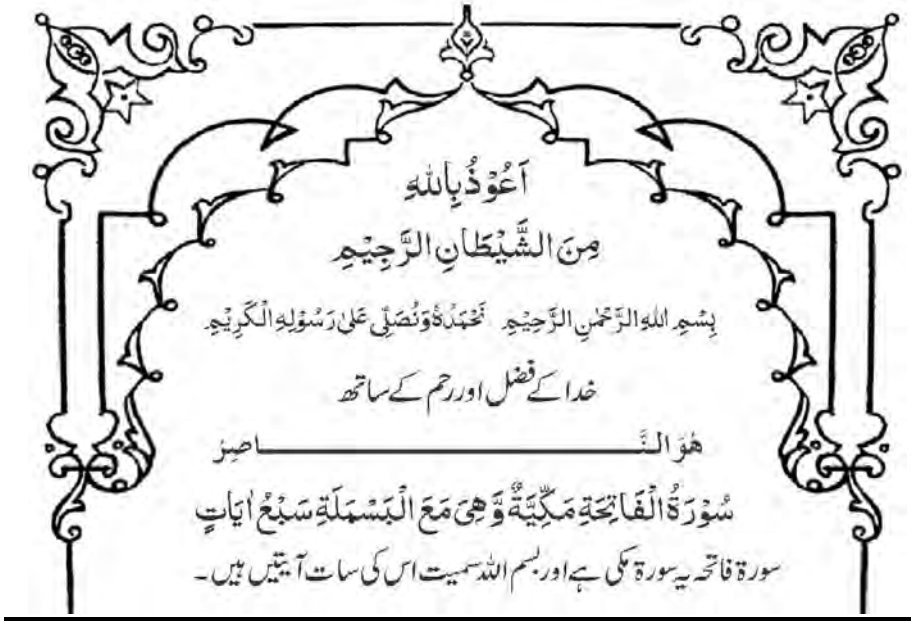 اَعُوْذُ بِاللّٰهِ
مِنَ الشَّيْطَانِ الرَّجِيْمِ
بِسْمِ اللّٰهِ الرَّحْمٰنِ الرَّحِيْمِ نَحْمَدُهٗ وَنُصَلِّیْ عَلٰی رَسُوْلِهِ الْكَرِيْمِ
خدا کے فضل اور رحم کے ساتھ
هُوَ النَّـــــــــــــــــاصِرُ
سُوْرَةُ الْفَاتِحَةِ مَكِّيَّةٌ وَّهِيَ مَعَ الْبَسْمَلَةِ سَبْعُ اٰيَاتٍ
سورۃ فاتحہ یہ سورۃ مکی ہے اور بسم اللہ سمیت اس کی سات آیتیں ہیں۔